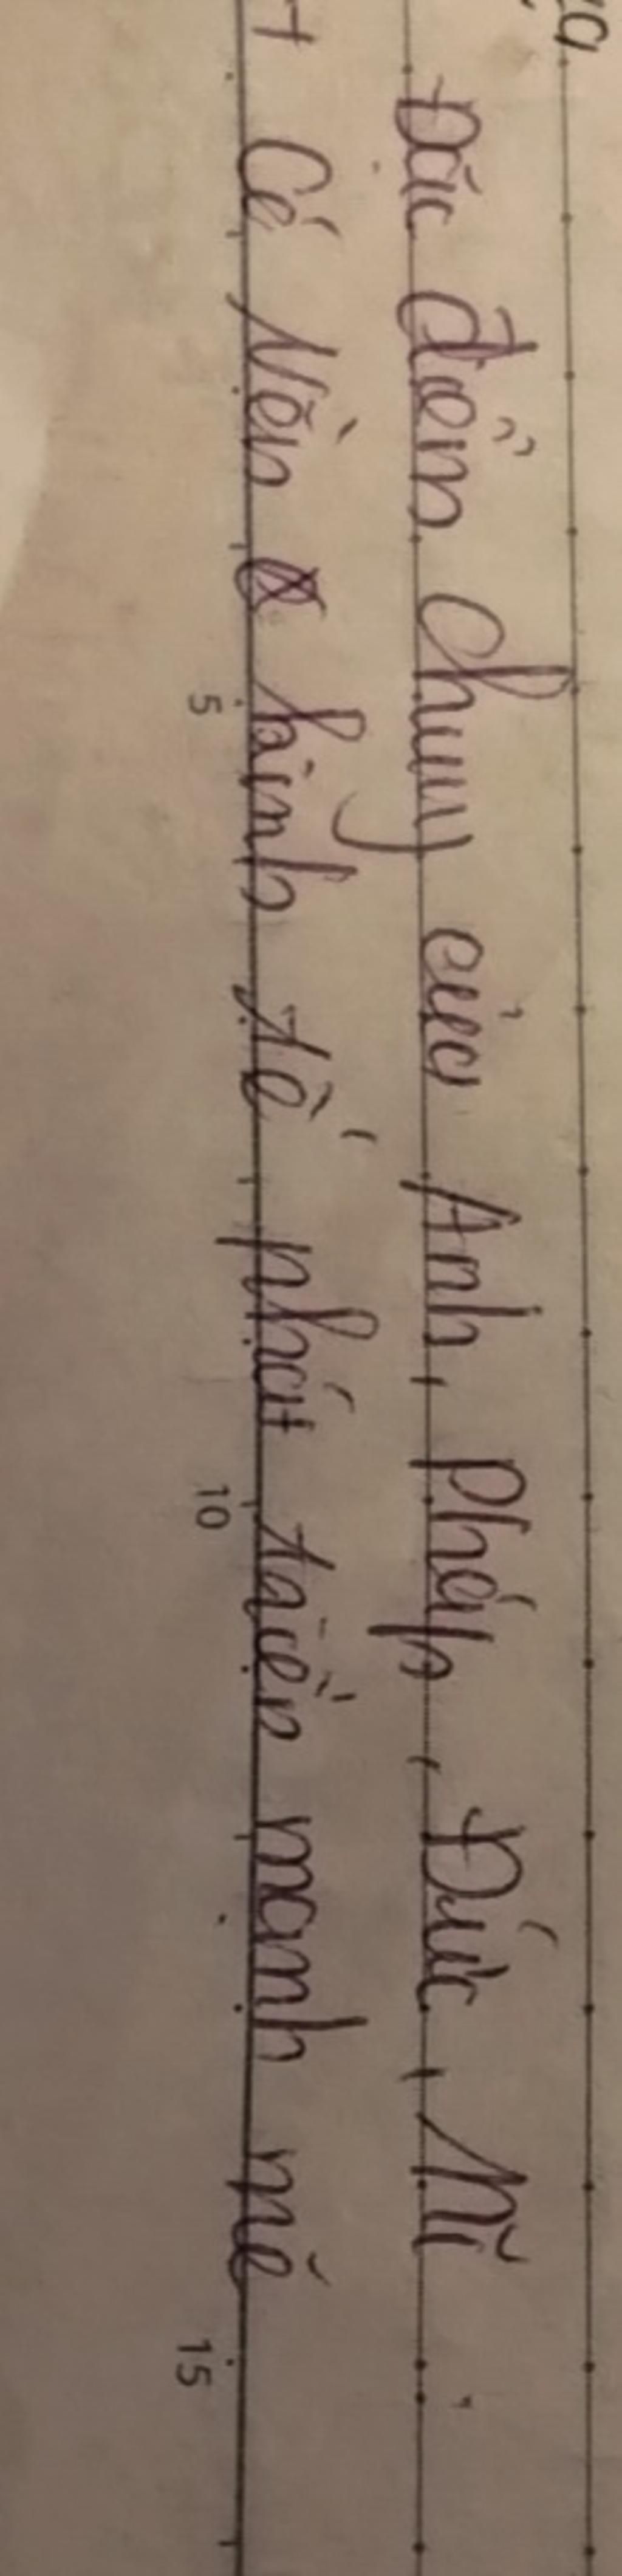 Đặc điểm chung của Anh, Pháp, Đức, Mĩ
+ Có nền kinh tế phát triển mạnh mẽ
5 10 15